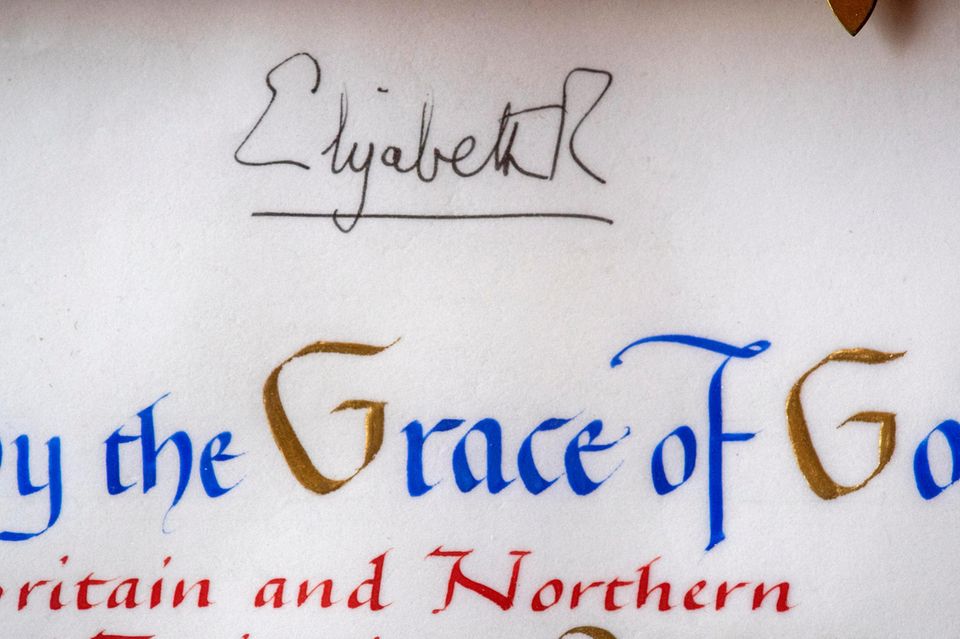 Elizabeth R
by the Grace of Go
ritain and Northern